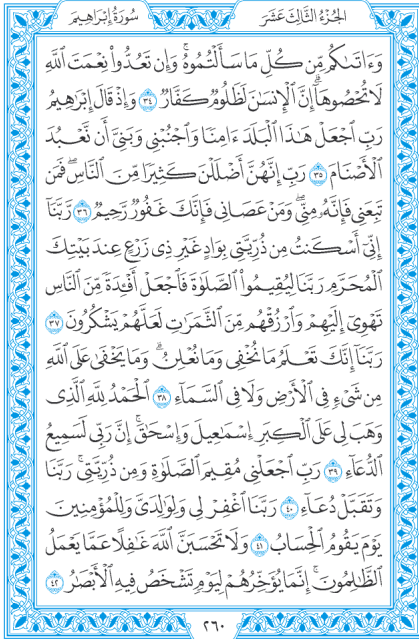 الجُزْءُ الثَّالِثَ عَشَرَ
سُورَةُ إِبْرَاهِيمَ
وَءَاتَىٰكُم مِّن كُلِّ مَا سَأَلْتُمُوهُ ۚ وَإِن تَعُدُّوا۟ نِعْمَتَ ٱللَّهِ
لَا تُحْصُوهَآ ۗ إِنَّ ٱلْإِنسَٰنَ لَظَلُومٌ كَفَّارٌ ٣٤ وَإِذْ قَالَ إِبْرَٰهِيمُ
رَبِّ ٱجْعَلْ هَٰذَا ٱلْبَلَدَ ءَامِنًا وَٱجْنُبْنِى وَبَنِىَّ أَن نَّعْبُدَ
ٱلْأَصْنَامَ ٣٥ رَبِّ إِنَّهُنَّ أَضْلَلْنَ كَثِيرًا مِّنَ ٱلنَّاسِ ۖ فَمَن
تَبِعَنِى فَإِنَّهُۥ مِنِّى ۖ وَمَنْ عَصَانِى فَإِنَّكَ غَفُورٌ رَّحِيمٌ ٣٦ رَّبَّنَآ
إِنِّىٓ أَسْكَنتُ مِن ذُرِّيَّتِى بِوَادٍ غَيْرِ ذِى زَرْعٍ عِندَ بَيْتِكَ
ٱلْمُحَرَّمِ رَبَّنَا لِيُقِيمُوا۟ ٱلصَّلَوٰةَ فَٱجْعَلْ أَفْـِٔدَةً مِّنَ ٱلنَّاسِ
تَهْوِىٓ إِلَيْهِمْ وَٱرْزُقْهُم مِّنَ ٱلثَّمَرَٰتِ لَعَلَّهُمْ يَشْكُرُونَ ٣٧
رَبَّنَآ إِنَّكَ تَعْلَمُ مَا نُخْفِى وَمَا نُعْلِنُ ۗ وَمَا يَخْفَىٰ عَلَى ٱللَّهِ
مِن شَىْءٍ فِى ٱلْأَرْضِ وَلَا فِى ٱلسَّمَآءِ ٣٨ ٱلْحَمْدُ لِلَّهِ ٱلَّذِى
وَهَبَ لِى عَلَى ٱلْكِبَرِ إِسْمَٰعِيلَ وَإِسْحَٰقَ ۚ إِنَّ رَبِّى لَسَمِيعُ
ٱلدُّعَآءِ ٣٩ رَبِّ ٱجْعَلْنِى مُقِيمَ ٱلصَّلَوٰةِ وَمِن ذُرِّيَّتِى ۚ رَبَّنَا
وَتَقَبَّلْ دُعَآءِ ٤٠ رَبَّنَا ٱغْفِرْ لِى وَلِوَٰلِدَىَّ وَلِلْمُؤْمِنِينَ
يَوْمَ يَقُومُ ٱلْحِسَابُ ٤١ وَلَا تَحْسَبَنَّ ٱللَّهَ غَٰفِلًا عَمَّا يَعْمَلُ
ٱلظَّٰلِمُونَ ۚ إِنَّمَا يُؤَخِّرُهُمْ لِيَوْمٍ تَشْخَصُ فِيهِ ٱلْأَبْصَٰرُ ٤٢
٢٦٠